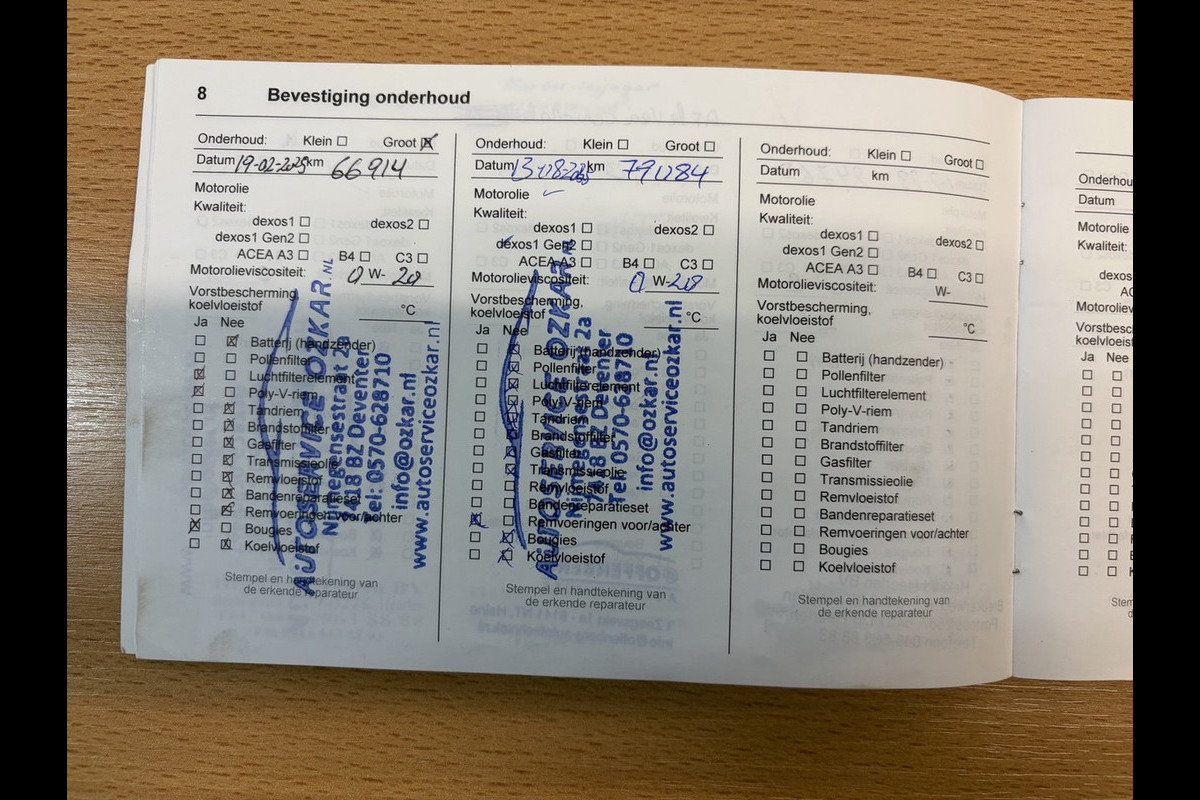 8 Bevestiging onderhoud
Onderhoud: Klein Groot
Datum 19-02-2025 km 66914
Motorolie
Kwaliteit:
dexos1 dexos2
dexos1 Gen2
ACEA A3 B4 C3
Motorolieviscositeit: 0 W- 20
Vorstbescherming
koelvloeistof °C
Ja Nee
Batterij (handzender)
Pollenfilter
Luchtfilterelement
Poly-V-riem
Tandriem
Brandstoffilter
Gasfilter
Transmissieolie
Remvloeistof
Bandenreparatieset
Remvoeringen voor/achter
Bougies
Koelvloeistof
AUTOSERVICE OZKAR.NL
Nijmegensestraat 2a
7418 BZ Deventer
Tel: 0570-628710
info@ozkar.nl
www.autoserviceozkar.nl
Stempel en handtekening van
de erkende reparateur
Onderhoud: Klein Groot
Datum 13-08- km 791184
Motorolie
Kwaliteit:
dexos1 dexos2
dexos1 Gen2
ACEA A3 B4 C3
Motorolieviscositeit: 0 W-20
Vorstbescherming,
koelvloeistof °C
Ja Nee
Batterij (handzender)
Pollenfilter
Luchtfilterelement
Poly-V-riem
Tandriem
Brandstoffilter
Gasfilter
Transmissieolie
Remvloeistof
Bandenreparatieset
Remvoeringen voor/achter
Bougies
Koelvloeistof
AUTOSERVICE OZKAR.NL
Nijmegensestraat 2a
7418 BZ Deventer
Tel: 0570-628710
info@ozkar.nl
www.autoserviceozkar.nl
Stempel en handtekening van
de erkende reparateur
Onderhoud: Klein Groot
Datum km
Motorolie
Kwaliteit:
dexos1 dexos2
dexos1 Gen2
ACEA A3 B4 C3
Motorolieviscositeit: W-
Vorstbescherming,
koelvloeistof °C
Ja Nee
Batterij (handzender)
Pollenfilter
Luchtfilterelement
Poly-V-riem
Tandriem
Brandstoffilter
Gasfilter
Transmissieolie
Remvloeistof
Bandenreparatieset
Remvoeringen voor/achter
Bougies
Koelvloeistof
Stempel en handtekening van
de erkende reparateur
Onderhou
Datum
Motorolie
Kwaliteit:
dexos
dexos1
AC
Motoroliev
Vorstbesc
koelvloeist
Ja Nee
Stem
d